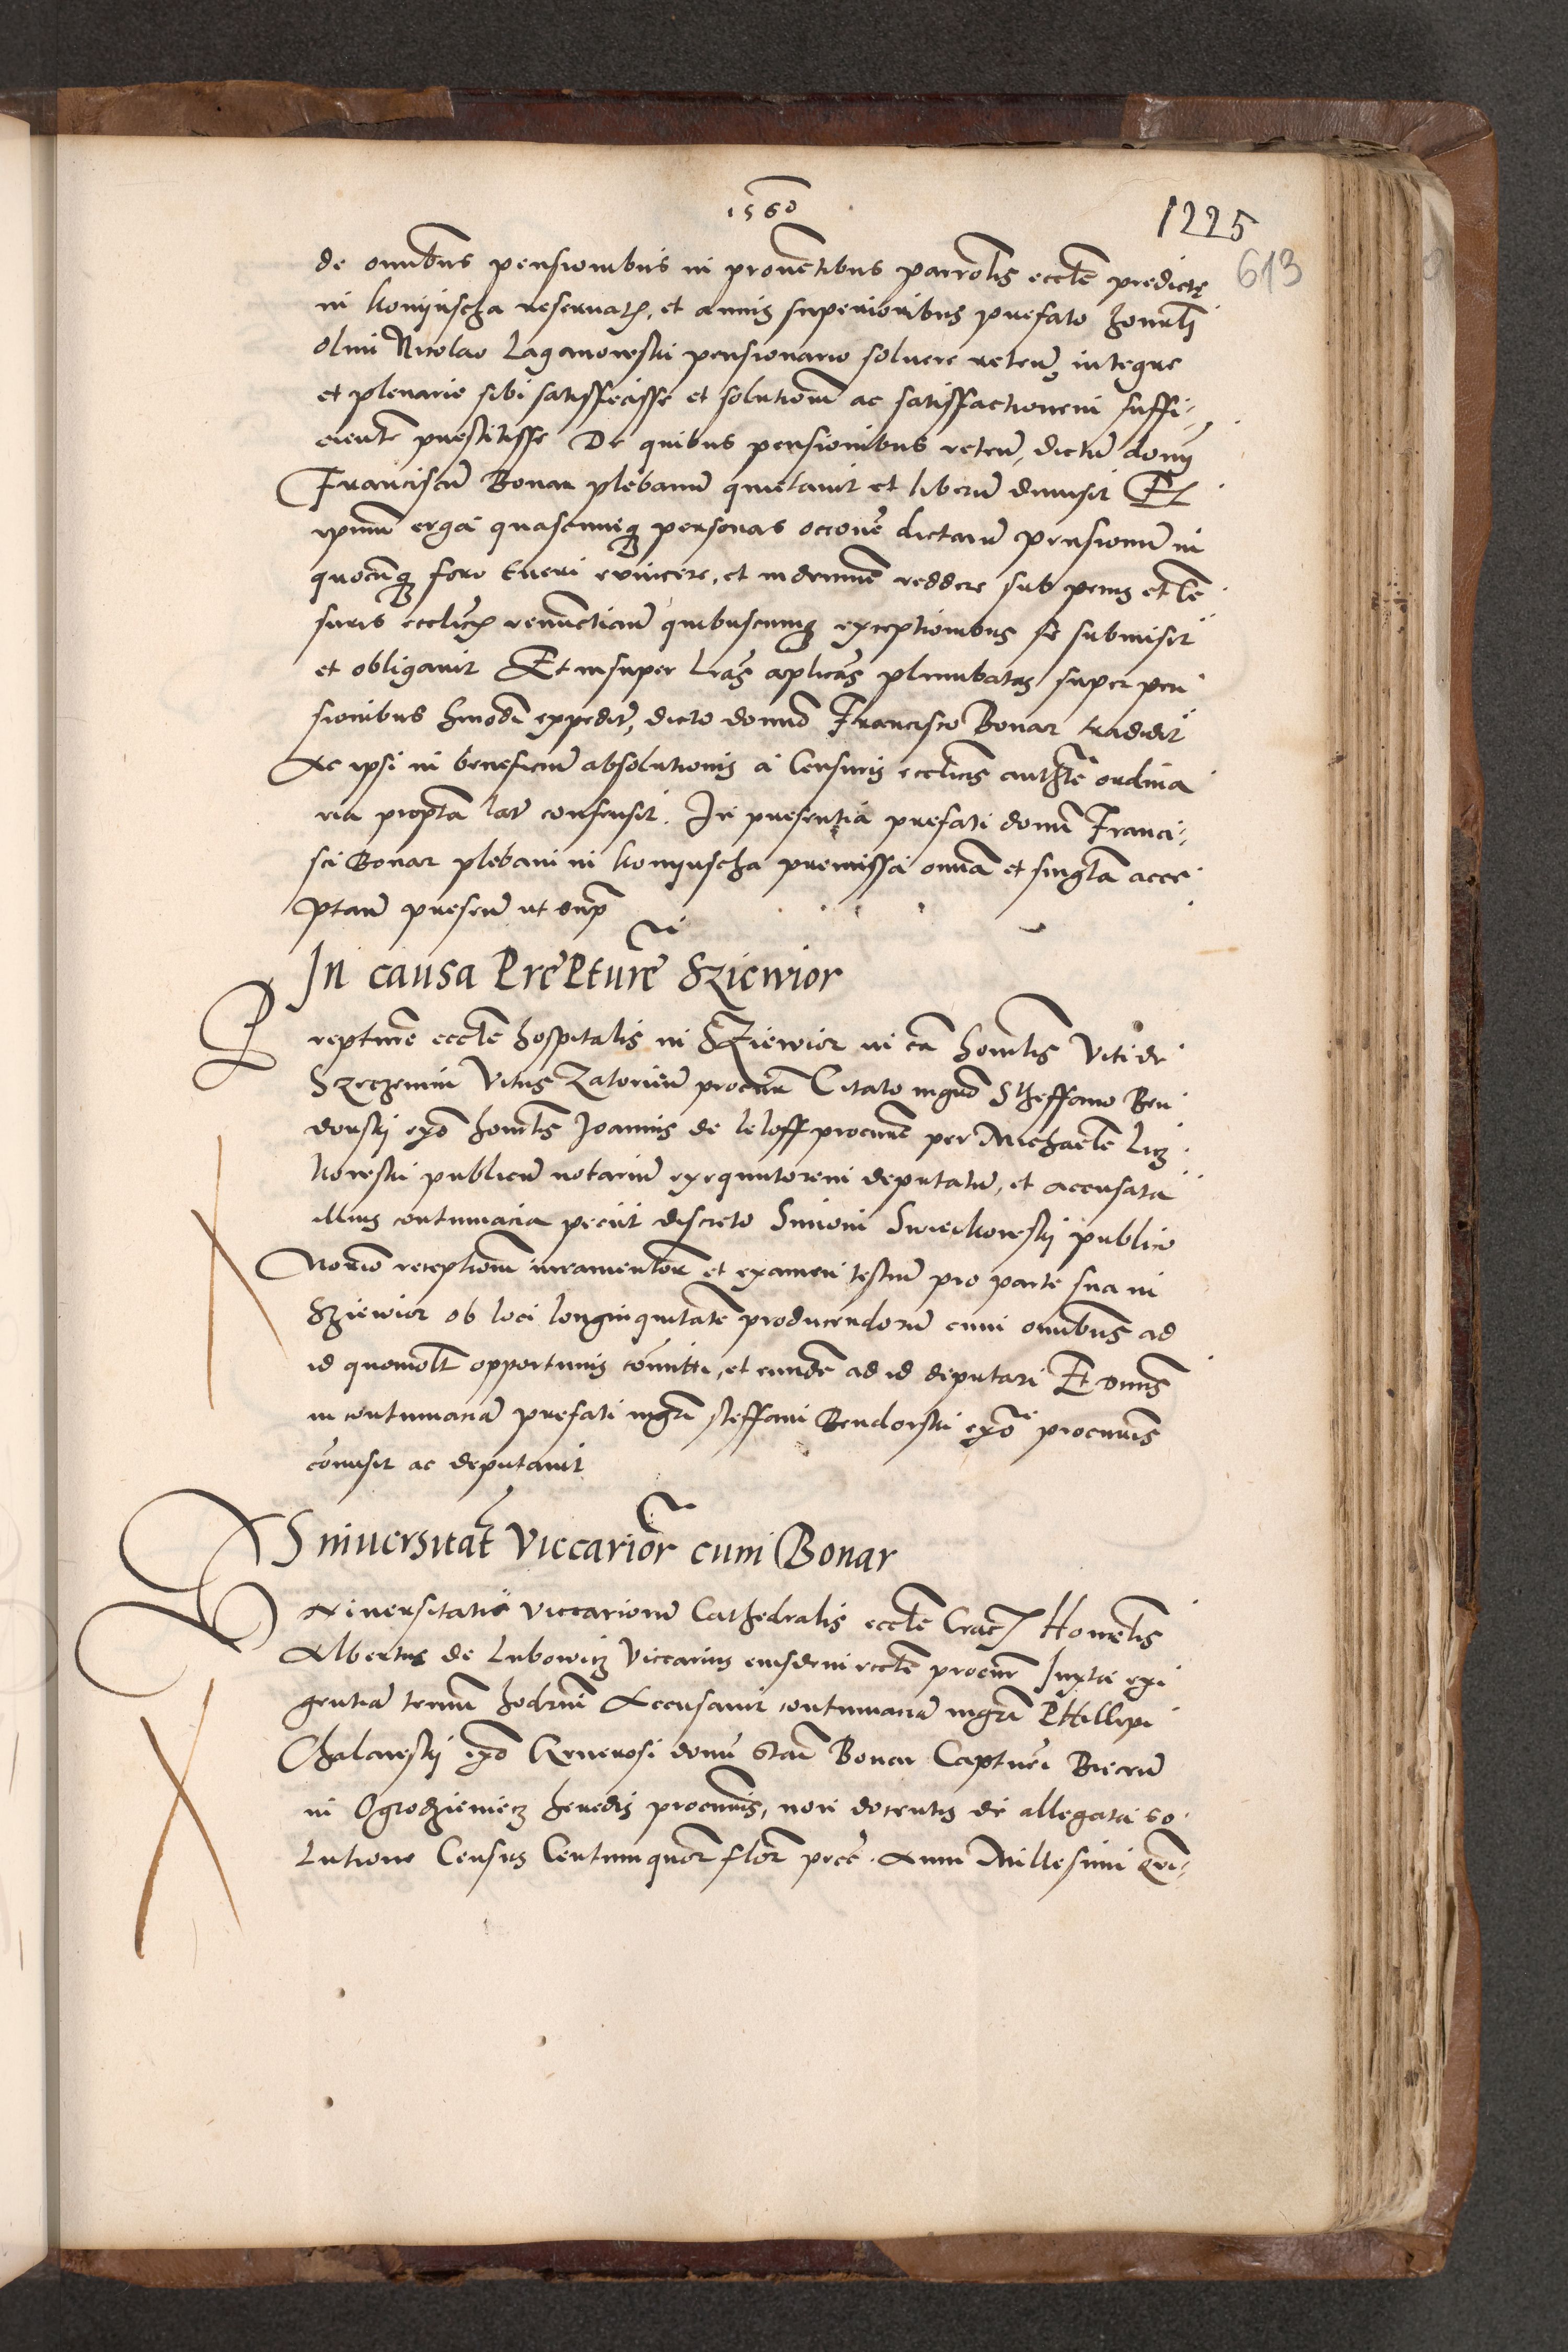 1560
1225
613
de omnibus pensionibus in proventibus parrolis eccle predicte
in konijuscha reservatis, et annis superioribus prefato honorli
olim Nicolao Laganowski pensionario solvere retent, integre
et plenarie sibi satisffecisse et solutionem ac satisffactionem suffi-
cientem prestitisse De quibus pensionibus retent, dictum dominum
Franciscum Bonar plebanum quietavit et liberum dimisit Et
ipsum erga quascumque personas occone dictarum pensionum in
quocumque foro tueri evincere, et indemnem reddere sub penis et cen
suris ecclicis renunctiando quibuscumque exceptionibus se submisit
et obligavit Et insuper lras aplicas plumbatas super pen
sionibus hmodi expeditas, dicto domino Francisco Bonar tradidit
Ac ipsi in beneficium absolutionis a Censuris ecclicis authte ordina
ria propterea lat consensit. In presentia prefati domini Franci-
sci Bonar plebani in konijuscha premissa omnia et singula acce
ptan presen ut supra
In causa Prepture Sziewior
Prepture eccle hospitalis in Sziewior in ca honorlis Viti de
Szeczemin Vitus Zatorien procur Citato mgro Stheffano Ben
dorskij expo honorlis Joannis de leloff procure per Michaelem Lcz
kowski publicum notarium exequutorem deputatum, et accusata
illius contumacia peciit discreto Simoni Swieikowskij publico
Notario receptionem iuramentorum et examen testium pro parte sua in
Sziewior ob loci longinquitatem producendorum cum omnibus ad
id quomolt opportunis comitti, et eundem ad id deputari Et dnus
in contumaciam prefati mgri steffani Bendorski expo procuris
comisit ac deputavit
Universitat Viccarior cum Bonar
Universitatis viccariorum Cathedralis eccle Crac Honorlis
Albertus de Lubowicz Viccarius eiusdem eccle procur Juxta exi
gentiam termini hodierni Accusavit contumaciam mgri Phillipi
Chalawskij expo Generosi domini Stani Bonar Capturi Biecen
in Ogrodzieniecz heredis procuris, non docentis de allegata so
lutione Census Centumquor flor prece. Anni Millesimi Qui-